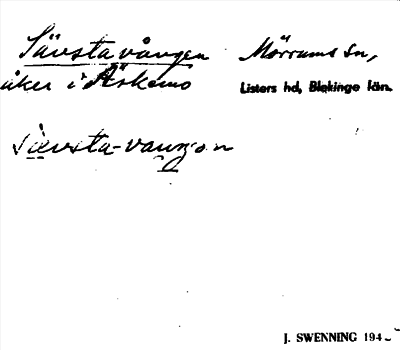 Sävstavången Mörrums sn,
åker i Askemo Listers hd, Blekinge län.
sävsta-vaŋgən
J. SWENNING 194